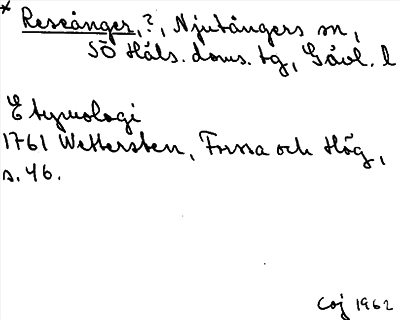 * Reseånger, ?, Njutångers sn,
SÖ Häls. doms. tg, Gävl. l
Etymologi
1761 Wettersten, Forssa och Hög,
s. 46.
Coj 1962